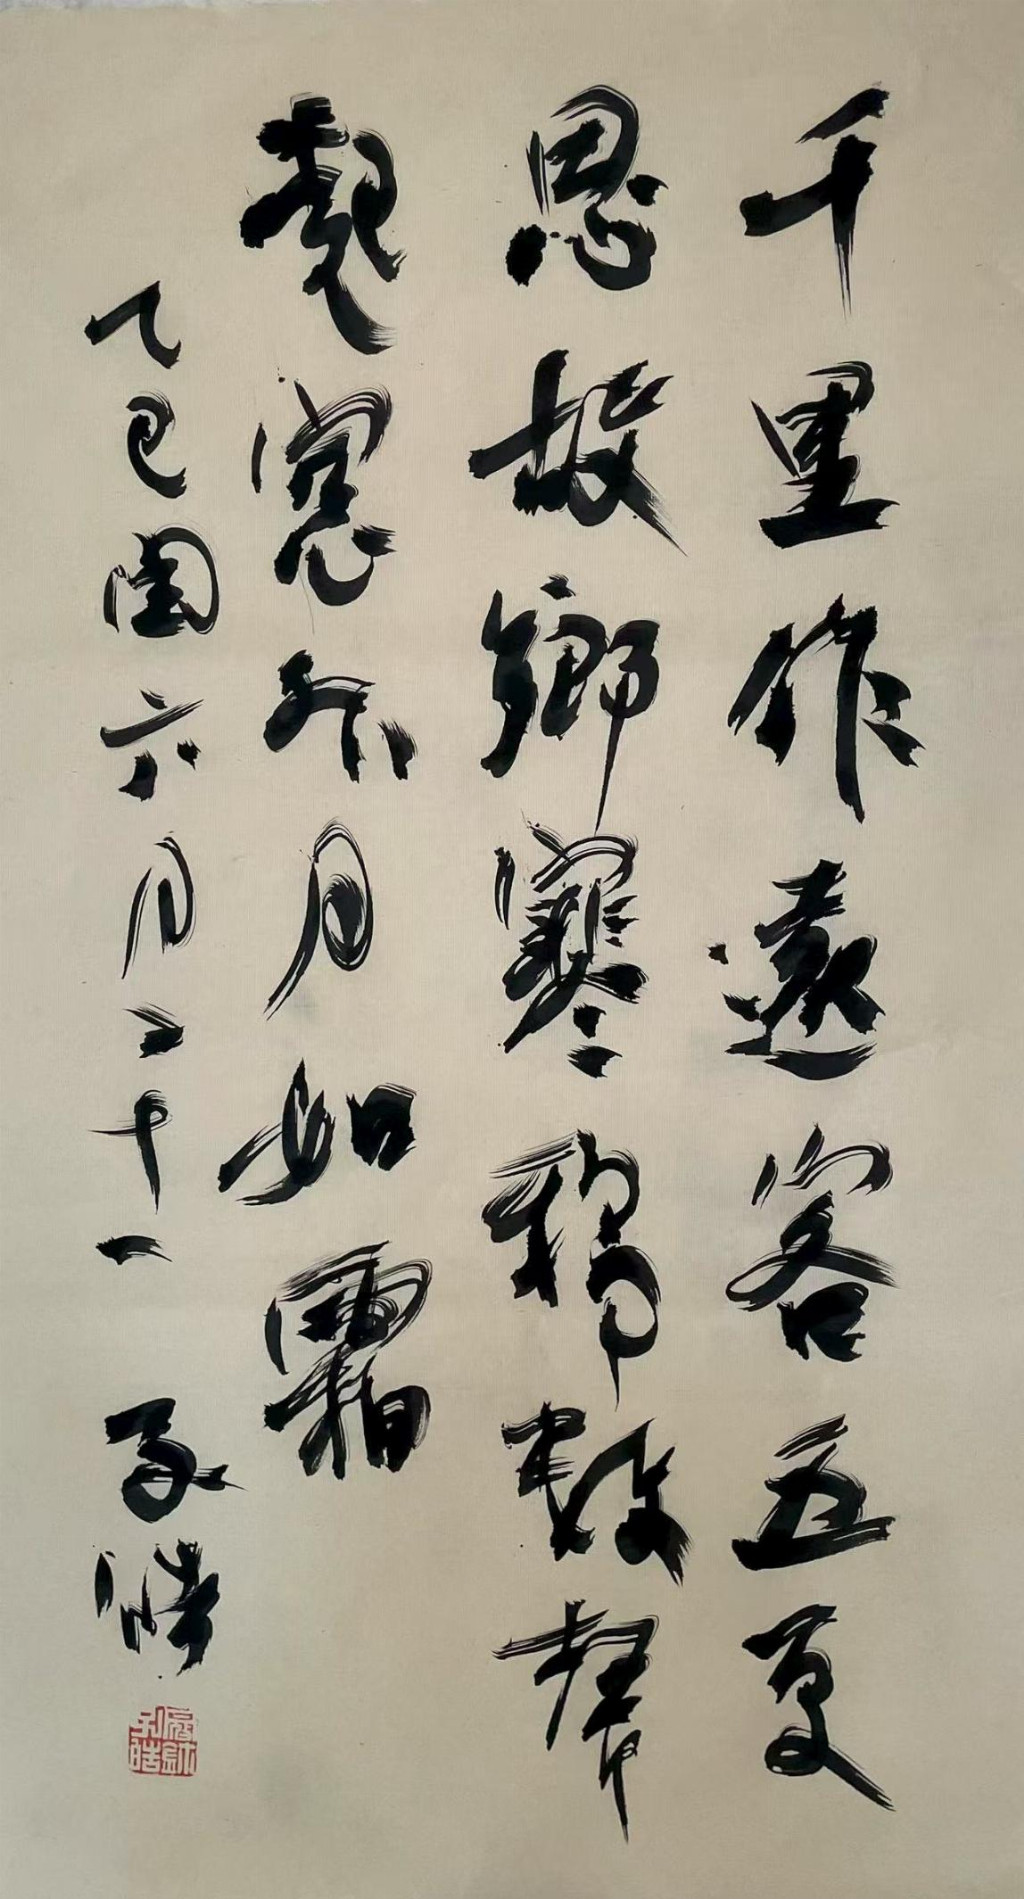 千里作遠客五更
思故鄉寒鴉數聲
起窗外月如霜
乙巳閏六月二十一